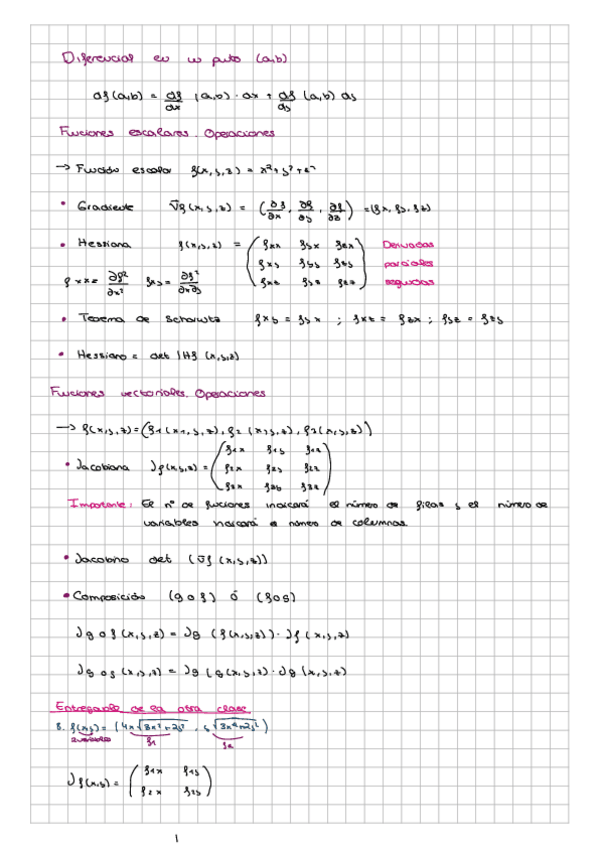 Diferencial en un punto (a,b)
df(a,b) = df/dx (a,b) · dx + df/dy (a,b) dy
Funciones escalares. Operaciones
→ Función escalar f(x,y,z) = x²+y²+z²
• Gradiente ∇f(x,y,z) = (∂f/∂x, ∂f/∂y, ∂f/∂z) = (fx, fy, fz)
• Hessiana f(x,y,z) = ( fxx fyx fzx Derivadas
fxy fyy fzy parciales
fxz fyz fzz ) segundas
fxx = ∂f²/∂x² fxy = ∂f²/∂x∂y
• Teorema de Schwartz fxy = fyx ; fxz = fzx ; fyz = fzy
• Hessiano = det |Hf (x,y,z)
Funciones vectoriales. Operaciones
→ f(x,y,z) = (f1(x,y,z), f2(x,y,z), f3(x,y,z))
• Jacobiana Jf(x,y,z) = ( f1x f1y f1z
f2x f2y f2z
f3x f3y f3z )
Importante: El nº de funciones indicará el número de filas y el número de
variables indicará el número de columnas.
• Jacobino det (Jf (x,y,z))
• Composición (g o f) ó (f o g)
Jg o f (x,y,z) = Jg (f(x,y,z)) · Jf (x,y,z)
Jg o g (x,y,z) = Jg (g(x,y,z) · Jg (x,y,z)
Entregable de la otra clase
8. f(x,y) = (4x√3x²+2y² , y√3x²+2y²)
2 variables f1 f2
Jf(x,y) = ( f1x f1y
f2x f2y )
1